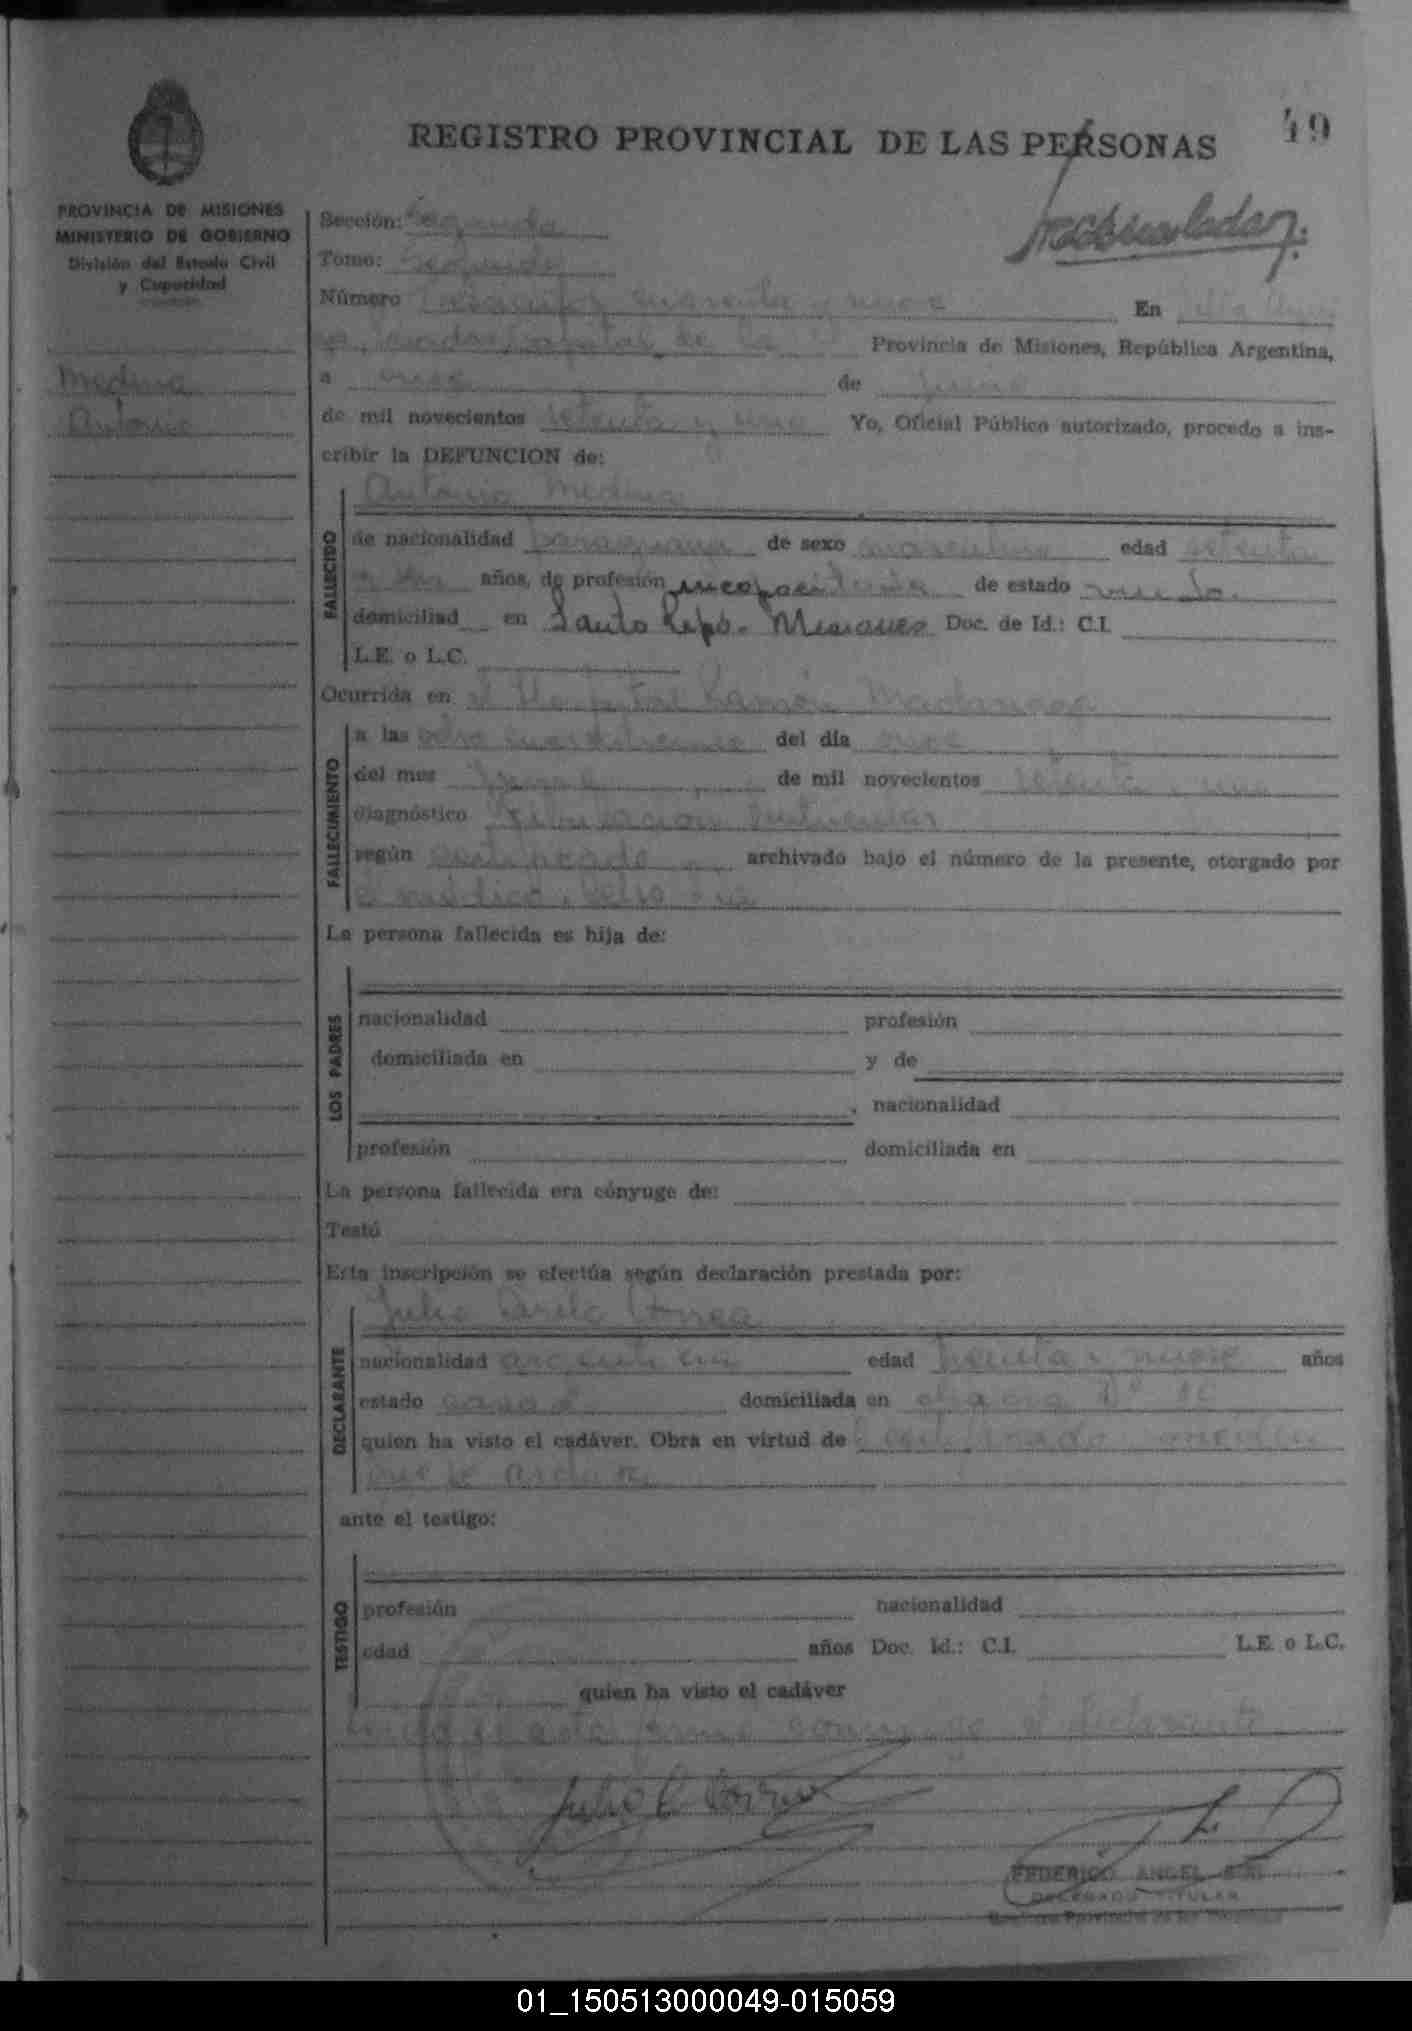 49
REGISTRO PROVINCIAL DE LAS PERSONAS
PROVINCIA DE MISIONES
MINISTERIO DE GOBIERNO
División del Estado Civil
y Capacidad
Medina
Antonio
Sección: Segunda
Tomo: Segundo
Número cuarenta y nueve En Villa
Capital de la Provincia de Misiones, República Argentina,
a once de junio
de mil novecientos setenta y uno Yo, Oficial Público autorizado, procedo a ins-
cribir la DEFUNCION de:
Antonio Medina
FALLECIDO
de nacionalidad paraguaya de sexo masculino edad setenta
y años, de profesión de estado viudo.
domiciliad en Santo Pipó. Misiones Doc. de Id.: C.I.
L.E. o L.C.
Ocurrida en el Hospital Ramón Madariaga
FALLECIMIENTO
a las ocho del día once
del mes junio de mil novecientos setenta y uno
diagnóstico Fibrilación Ventricular
según certificado archivado bajo el número de la presente, otorgado por
el médico,
La persona fallecida es hija de:
LOS PADRES
nacionalidad profesión
domiciliada en y de
, nacionalidad
profesión domiciliada en
La persona fallecida era cónyuge de:
Testó
Esta inscripción se efectúa según declaración prestada por:
DECLARANTE
Julio
nacionalidad argentina edad treinta y nueve años
estado casado domiciliada en chacra Nº
quien ha visto el cadáver. Obra en virtud de
ante el testigo:
TESTIGO
profesión nacionalidad
edad años Doc. Id.: C.I. L.E. o L.C.
quien ha visto el cadáver
Leída el acta firma conmigo el declarante
Julio C.
FEDERICO ANGEL
DELEGADO TITULAR
Registro Provincial de las Personas
01_150513000049-015059